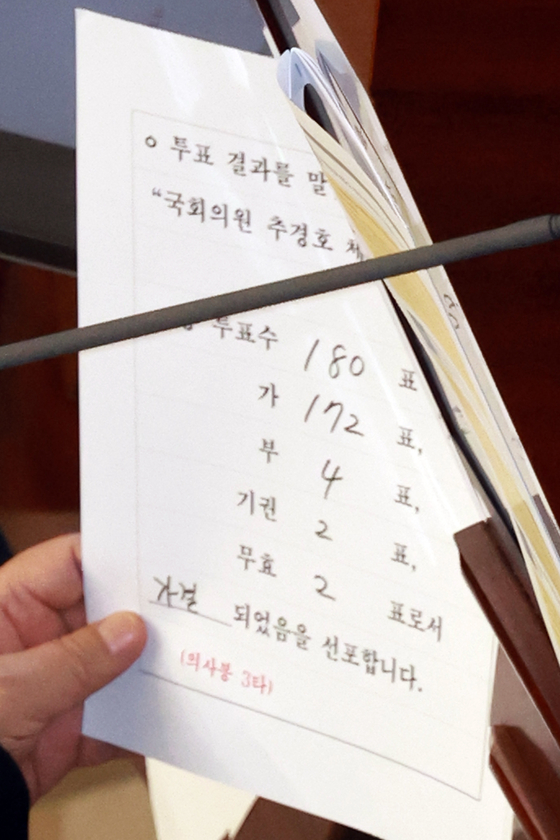 o 투표 결과를 말
“국회의원 추경호 체
투표수 180 표
가 172 표,
부 4 표,
기권 2 표,
무효 2 표로서
가결 되었음을 선포합니다.
(의사봉 3타)